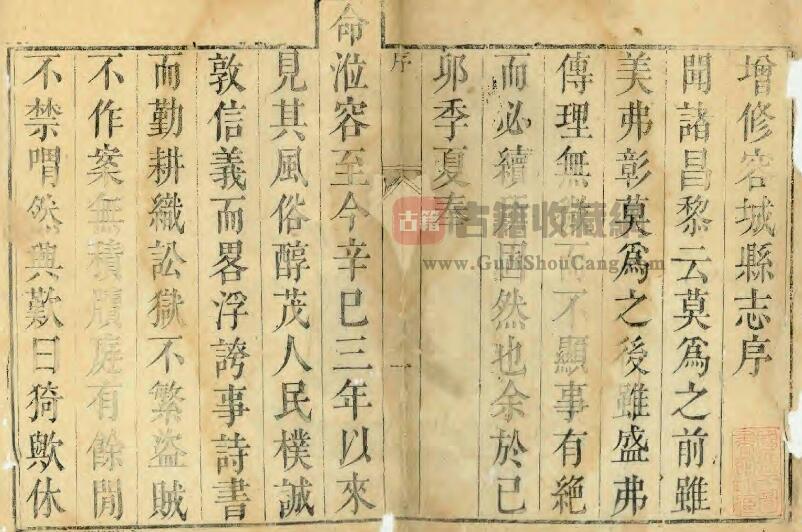 增修容城縣志序
聞諸昌黎云莫爲之前雖
美弗彰莫爲之後雖盛弗
傳理無 而不顯事有絶
而必續 固然也余於已
卯季夏奉
序
一
命涖容至今辛巳三年以來
見其風俗醇茂人民樸誠
敦信義而畧浮誇事詩書
而勤耕織訟獄不繁盜賊
不作案無積牘庭有餘閒
不禁喟然興歎曰猗歟休
古籍
古籍收藏
www.GuJiShouCang.com